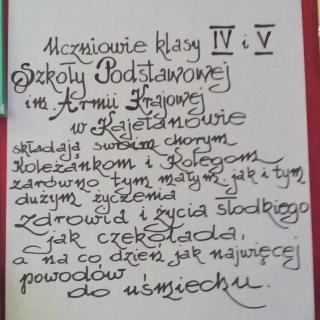 Uczniowie klasy IV i V
Szkoły Podstawowej
im. Armii Krajowej
w Kajetanowie
składają swoim chorym
Koleżankom i Kolegom
zarówno tym małym, jak i tym
dużym życzenia
zdrowia i życia słodkiego
jak czekolada,
a na co dzień jak najwięcej
powodów
do uśmiechu.